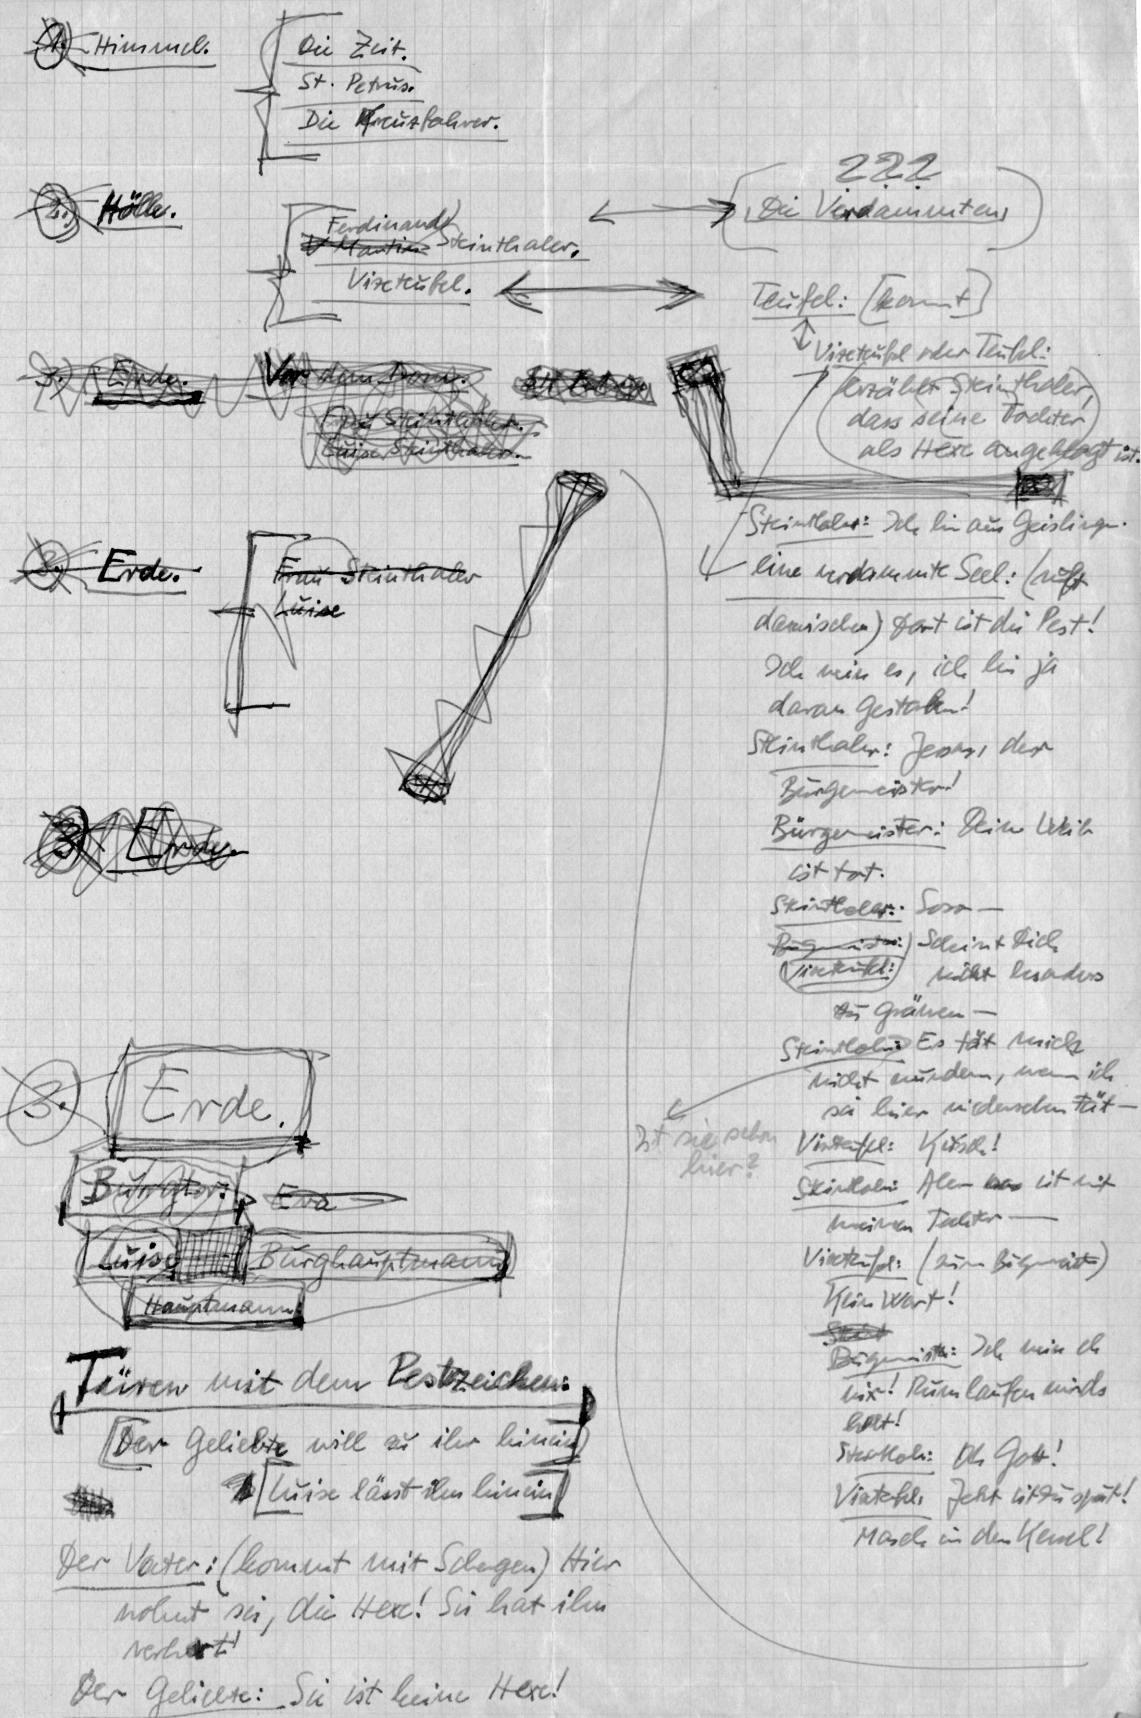 1. Himmel.
Die Zeit.
St. Petrus.
Die Kreuzfahrer.
2. Hölle.
Ferdinand
Martin Steinthaler.
Vizeteufel.
222
Die Verdammten
Teufel: [kommt]
Vizeteufel oder Teufel:
erzählt Steinthaler,
dass seine Tochter
als Hexe angeklagt ist.
3. Erde. Vor dem Dom.
Frau Steinthaler.
Luise Steinthaler.
3. Erde.
Frau Steinthaler
Luise
3. Erde.
3. Erde.
Burgtor: Eva
Luise Burghauptmann
Hauptmann:
Türen mit dem Pestzeichen:
[Der Geliebte will zu ihr hinein]
[Luise lässt ihn hinein]
Der Vater: (kommt mit Schergen) Hier
wohnt sie, die Hexe! Sie hat ihn
verhext!
Der Geliebte: Sie ist keine Hexe!
Steinthaler: Ich bin aus Geislingen.
Eine verdammte Seel: (ruft
dazwischen) Dort ist die Pest!
Ich weiss es, ich bin ja
daran gestorben!
Steinthaler: Jessas, der
Bürgermeister!
Bürgermeister: Dein Weib
ist tot.
Steinthaler: Soso —
Bürgermeister:) Scheint Dich
Vizeteufel: nicht besonders
zu grämen —
Steinthaler: Es tät mich
nicht wundern, wenn ich
sie hier wiedersehen tät —
Ist sie schon
hier?
Vizeteufel: Kusch!
Steinthaler: Aber was ist mit
meiner Tochter —
Vizeteufel: (zum Bürgermeister)
Kein Wort!
Stein
Bürgermeister: Ich weiss eh
nix! Rumlaufen wirds
halt!
Steinthaler: Oh Gott!
Vizeteufel: Jetzt ist zu spät!
Marsch in den Kessel!